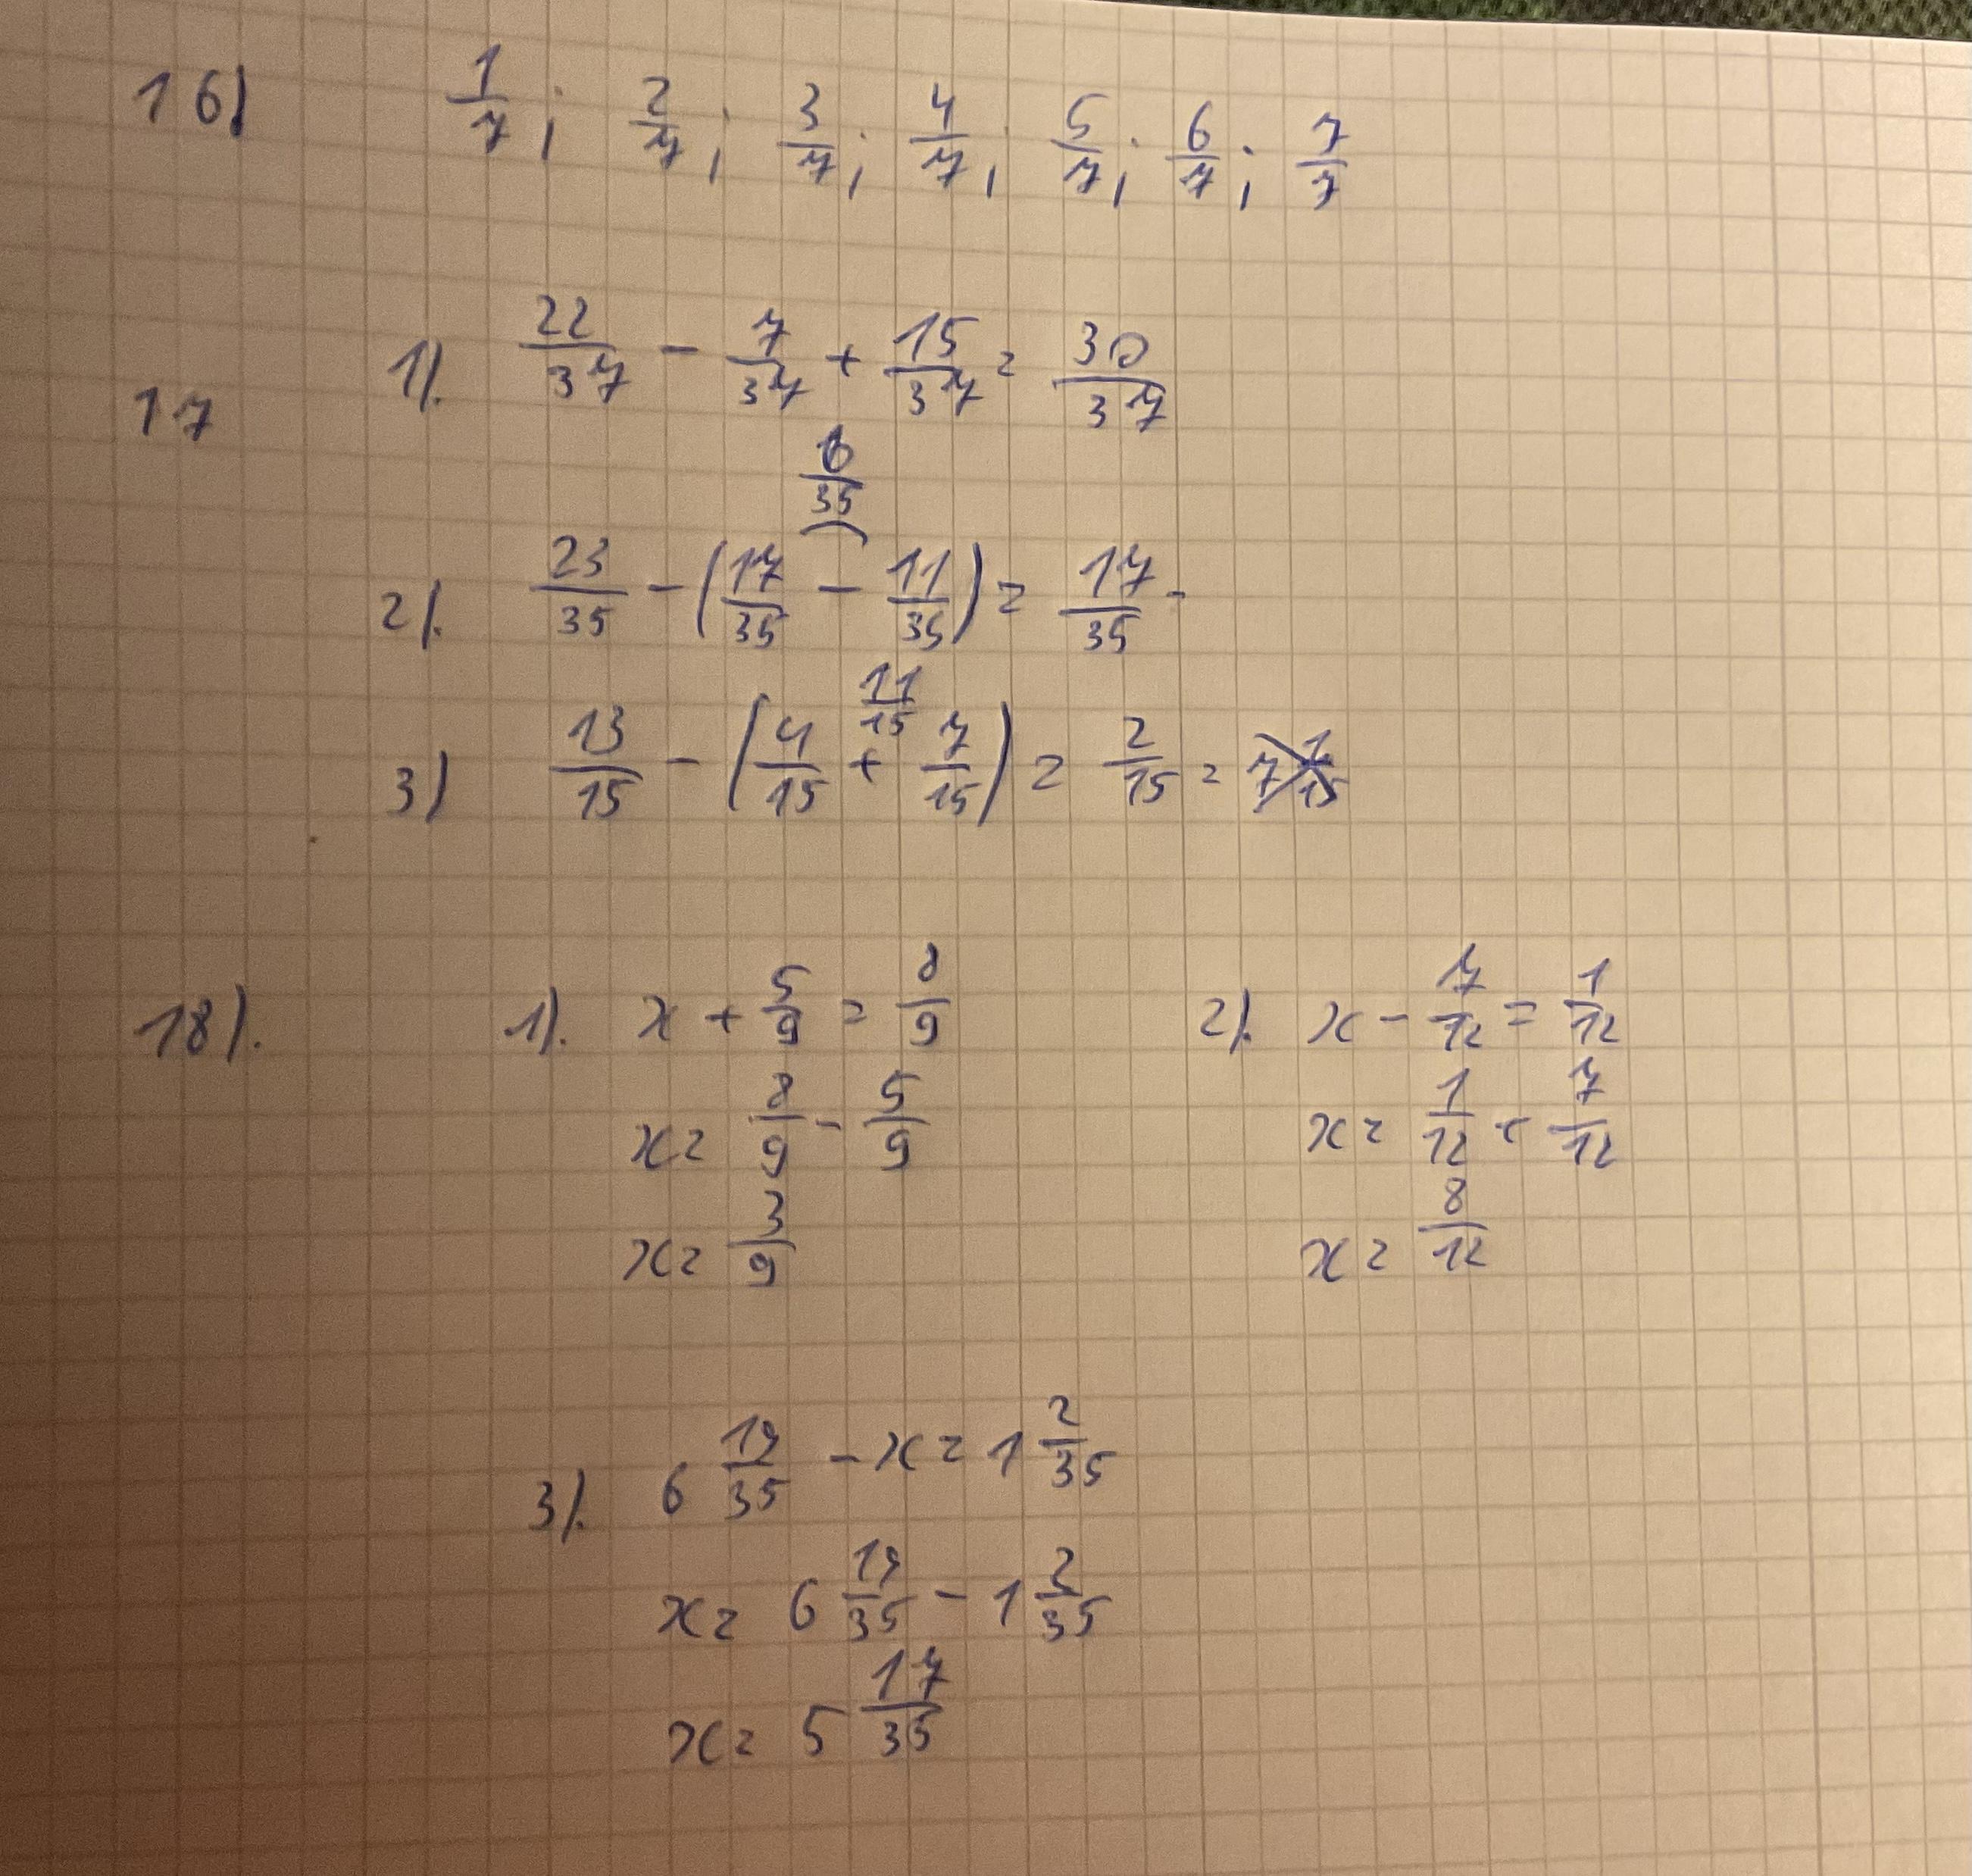 16) 1/7; 2/7; 3/7; 4/7; 5/7; 6/7; 7/7
17 1). 22/37 - 7/37 + 15/37 = 30/37
6/35
2). 23/35 - (17/35 - 11/35) = 17/35 -
11/15
3) 13/15 - (4/15 + 7/15) = 2/15 =
18). 1). x + 5/9 = 8/9 2). x - 7/12 = 1/12
x = 8/9 - 5/9 x = 1/12 + 7/12
x = 3/9 x = 8/12
3). 6 19/35 - x = 1 2/35
x = 6 19/35 - 1 2/35
x = 5 17/35